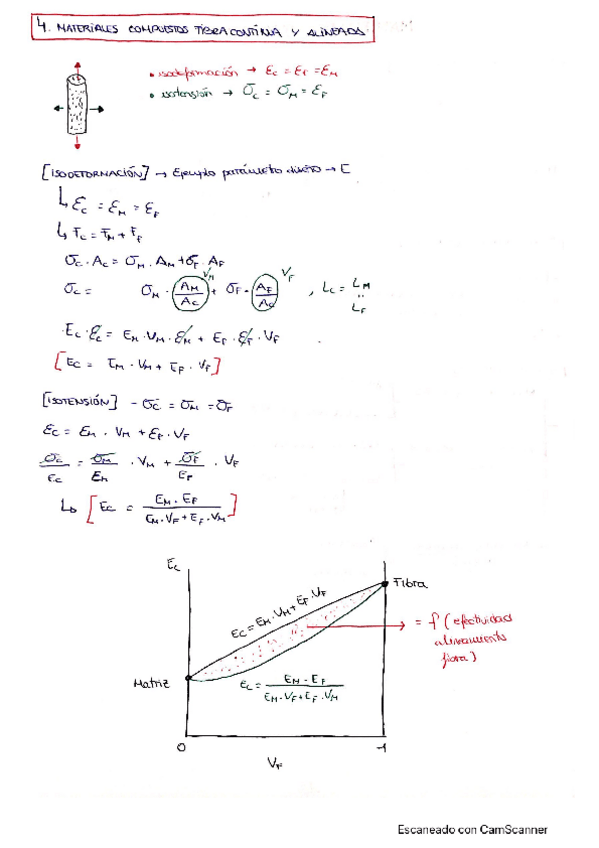 4. MATERIALES COMPUESTOS FIBRA CONTINUA Y ALINEADA
• isodeformación → εc = εF = εM
• isotensión → σc = σM = εF
[ISODEFORMACIÓN] → Ejemplo parámetro diseño → E
↳ εc = εM = εF
↳ Fc = FM + Ff
σc · Ac = σM · AM + σF · AF
σc = σM · AM/Ac + σF · AF/Ac , Lc = LM = LF
VM VF
Ec · εc = EM · VM · εM + EF · εF · VF
[Ec = EM · VM + EF · VF]
[ISOTENSIÓN] - σc = σM = σF
εc = εM · VM + εF · VF
σc/Ec = σM/EM · VM + σF/EF · VF
↳ [Ec = EM · EF / EM · VF + EF · VM]
Ec
Fibra
Ec = EM · VM + EF · VF
= f (efectividad
alineamiento
fibra)
Matriz
Ec = EM · EF / EM · VF + EF · VM
0
1
VF
Escaneado con CamScanner